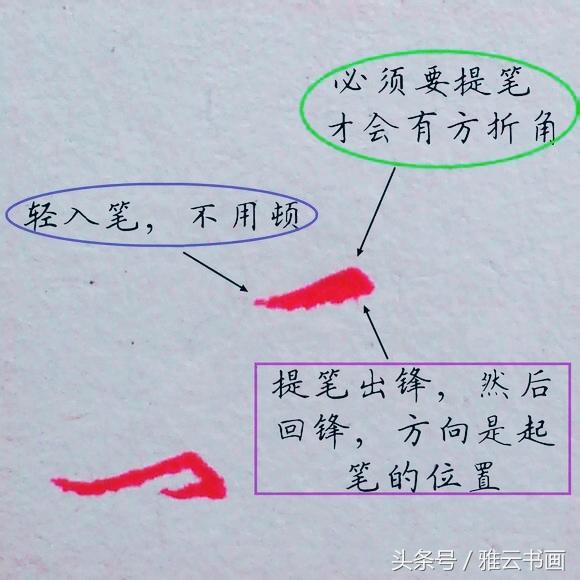 必须要提笔
才会有方折角
轻入笔，不用顿
提笔出锋，然后
回锋，方向是起
笔的位置
头条号／雅云书画